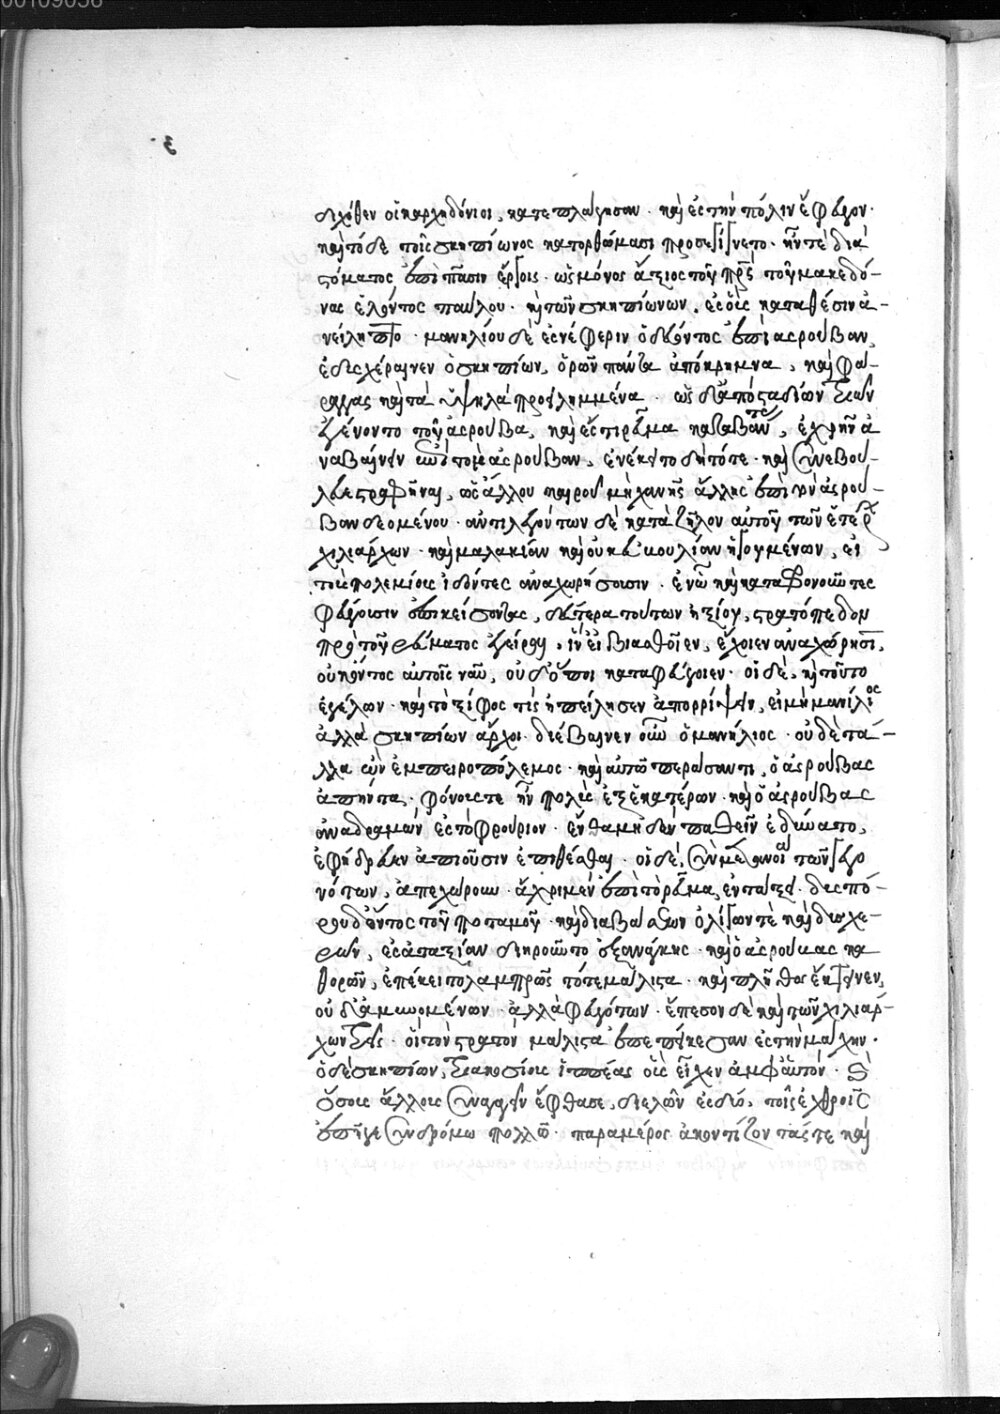 διχόθεν οἱ καρχηδόνιοι, κατεπλάγησαν. καὶ ἐς τὴν πόλιν ἔφευγον.
καὶ τόδε τοῖς σκιπίωνος κατορθώμασι προσεγίγνετο. ἦν τὲ διὰ
στόματος ἐπὶ πᾶσιν ἔργοις. ὡς μόνος ἄξιος τοῦ πρς τοῦ μακεδό-
νας ἑλόντος παύλου. καὶ τῶν σκηπιώνων, ἐς οὓς καταθέσιν ἀ-
νείληπτο. μανηλίου δὲ ἐς νέφεριν ὁδεύοντος ἐπὶ ἀσρούβαν,
ἐδυσχέραινεν ὁ σκηπίων, ὁρῶν πάντα ἀπόκρημνα, καὶ φά-
ραγγας καὶ τὰ ὑψηλὰ προειλημμένα. ὡς δ' ἀπὸ σταδίων τριῶν
ἐγένοντο τοῦ ἀσρούβα, καὶ ἐς τι ῥεῦμα καταβάντας, ἐχρῆν ἀ
ναβαίνειν ἐπὶ τὸν ἀσρούβαν, ἐνέκειτο δὴ τότε. καὶ συνεβού-
λευε στραφῆναι, ὡς ἄλλου καιροῦ μηχανῆς ἄλλης ἐπὶ τὸν ἀσρού-
βαν δεομένου. ἀντιλεγόντων δὲ κατὰ ζῆλον αὐτοῦ τῶν ἑτέρων
χιλιάρχων. καὶ μαλακίαν καὶ οὐκ εὐβουλίαν ἡγουμένων, εἰ
τοὺς πολεμίους ἰδόντες ἀναχωρήσουσιν. ἐν ᾧ καὶ καταφρονοῦντες
φεύγουσιν ἐπικείσονται, δεύτερα τούτων ἠξίου, στρατόπεδον
πρὸ τοῦ ῥεύματος ἐγεῖραι, ἵν' εἰ βιασθεῖεν, ἔχοιεν ἀναχώρησιν,
οὐκ ὄντος αὐτοῖς νῦν, οὐδ' ὅποι καταφεύγοιεν. οἱ δὲ, καὶ τοῦτο
ἐγέλων. καὶ τὸ ξίφος τὶς ἠπείλησεν ἀπορρίψειν, εἰ μὴ μανίλιος
ἀλλὰ σκηπίων ἄρχοι. διέβαινεν οὖν ὁ μανήλιος. οὐδὲ τἄ-
λλα ὢν ἐμπειροπόλεμος. καὶ αὐτῷ περάσαντι, ὁ ἀσρούβας
ἀπήντα. φόνος τε ἦν πολὺς ἐξ ἑκατέρων. καὶ ὁ ἀσρούβας
ἀναδραμὼν ἐς τὸ φρούριον. ἔνθα μηδὲν παθεῖν ἐδύνατο,
ἐφήδρευεν ἀπιοῦσιν ἐπιθέσθαι. οἱ δὲ, σὺν μετανοίᾳ τῶν γεγο
νότων, ἀπεχώρουν. ἄχρι μὲν ἐπὶ τὸ ῥεῦμα, ἐν τάξει. δυσπό-
ρου δ' ὄντος τοῦ ποταμοῦ. καὶ διαβάσεων ὀλίγων τὲ καὶ δυσχε-
ρῶν, ἐς ἀταξίαν διῃροῦντο ἐξ ἀνάγκης. καὶ ὁ ἀσρούβας κα
θορῶν, ἐπέκειτο λαμπρῶς τότε μάλιστα. καὶ πλῆθος ἔκτεινεν,
οὐδ' ἀμυνομένων. ἀλλὰ φευγόντων. ἔπεσον δὲ καὶ τῶν χιλιάρ-
χων τρεῖς. οἳ τὸν στρατηγὸν μάλιστα ἐπεπείκεσαν ἐς τὴν μάχην.
ὁ δὲ σκηπίων, τριακοσίους ἱππέας οὓς εἶχεν ἀμφ' αὑτόν. καὶ
ὅσους ἄλλους συναγαγεῖν ἔφθασε, διελὼν ἐς δύο, τοῖς ἐχθροῖς
ἐπῆγε σὺν δρόμῳ πολλῷ. παραμέρος ἀκοντίζοντάς τε καὶ